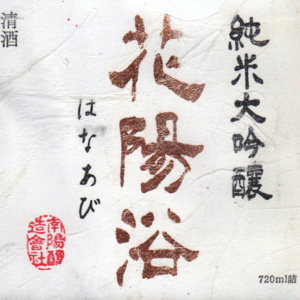 純米大吟醸
花陽浴
はなあび
清酒
南陽醸
造會社
720ml詰